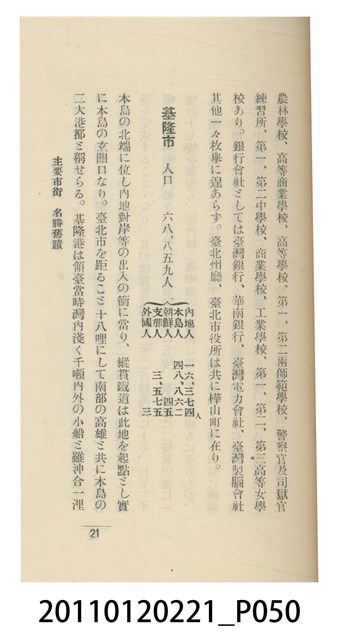 農林學校、高等商業學校、高等學校、第一、第二兩師範學校、警察官及司獄官
練習所、第一、第二中學校、商業學校、工業學校、第一、第二、第三高等女學
校あり。銀行會社としては臺灣銀行、華南銀行、臺灣電力會社、臺灣製腦會社
其他一々枚擧に遑あらす。臺北州廳、臺北市役所は共に樺山町に在り。
基隆市 人口 六八、八五九人
內地人 一六、三七四人
本島人 四八、八六二
朝鮮人 四五
支那人 三、五七五
外國人 三
本島の北端に位し內地對岸等の出入の衝に當り、縱貫鐵道は此地を起點とし實
に本島の玄關口なり。臺北市を距ること十八哩にして南部の高雄と共に本島の
二大港都と稱せらる。基隆港は領臺當時灣內淺く千噸內外の小船と雖沖合一浬
主要市街 名勝舊蹟
21
20110120221_P050